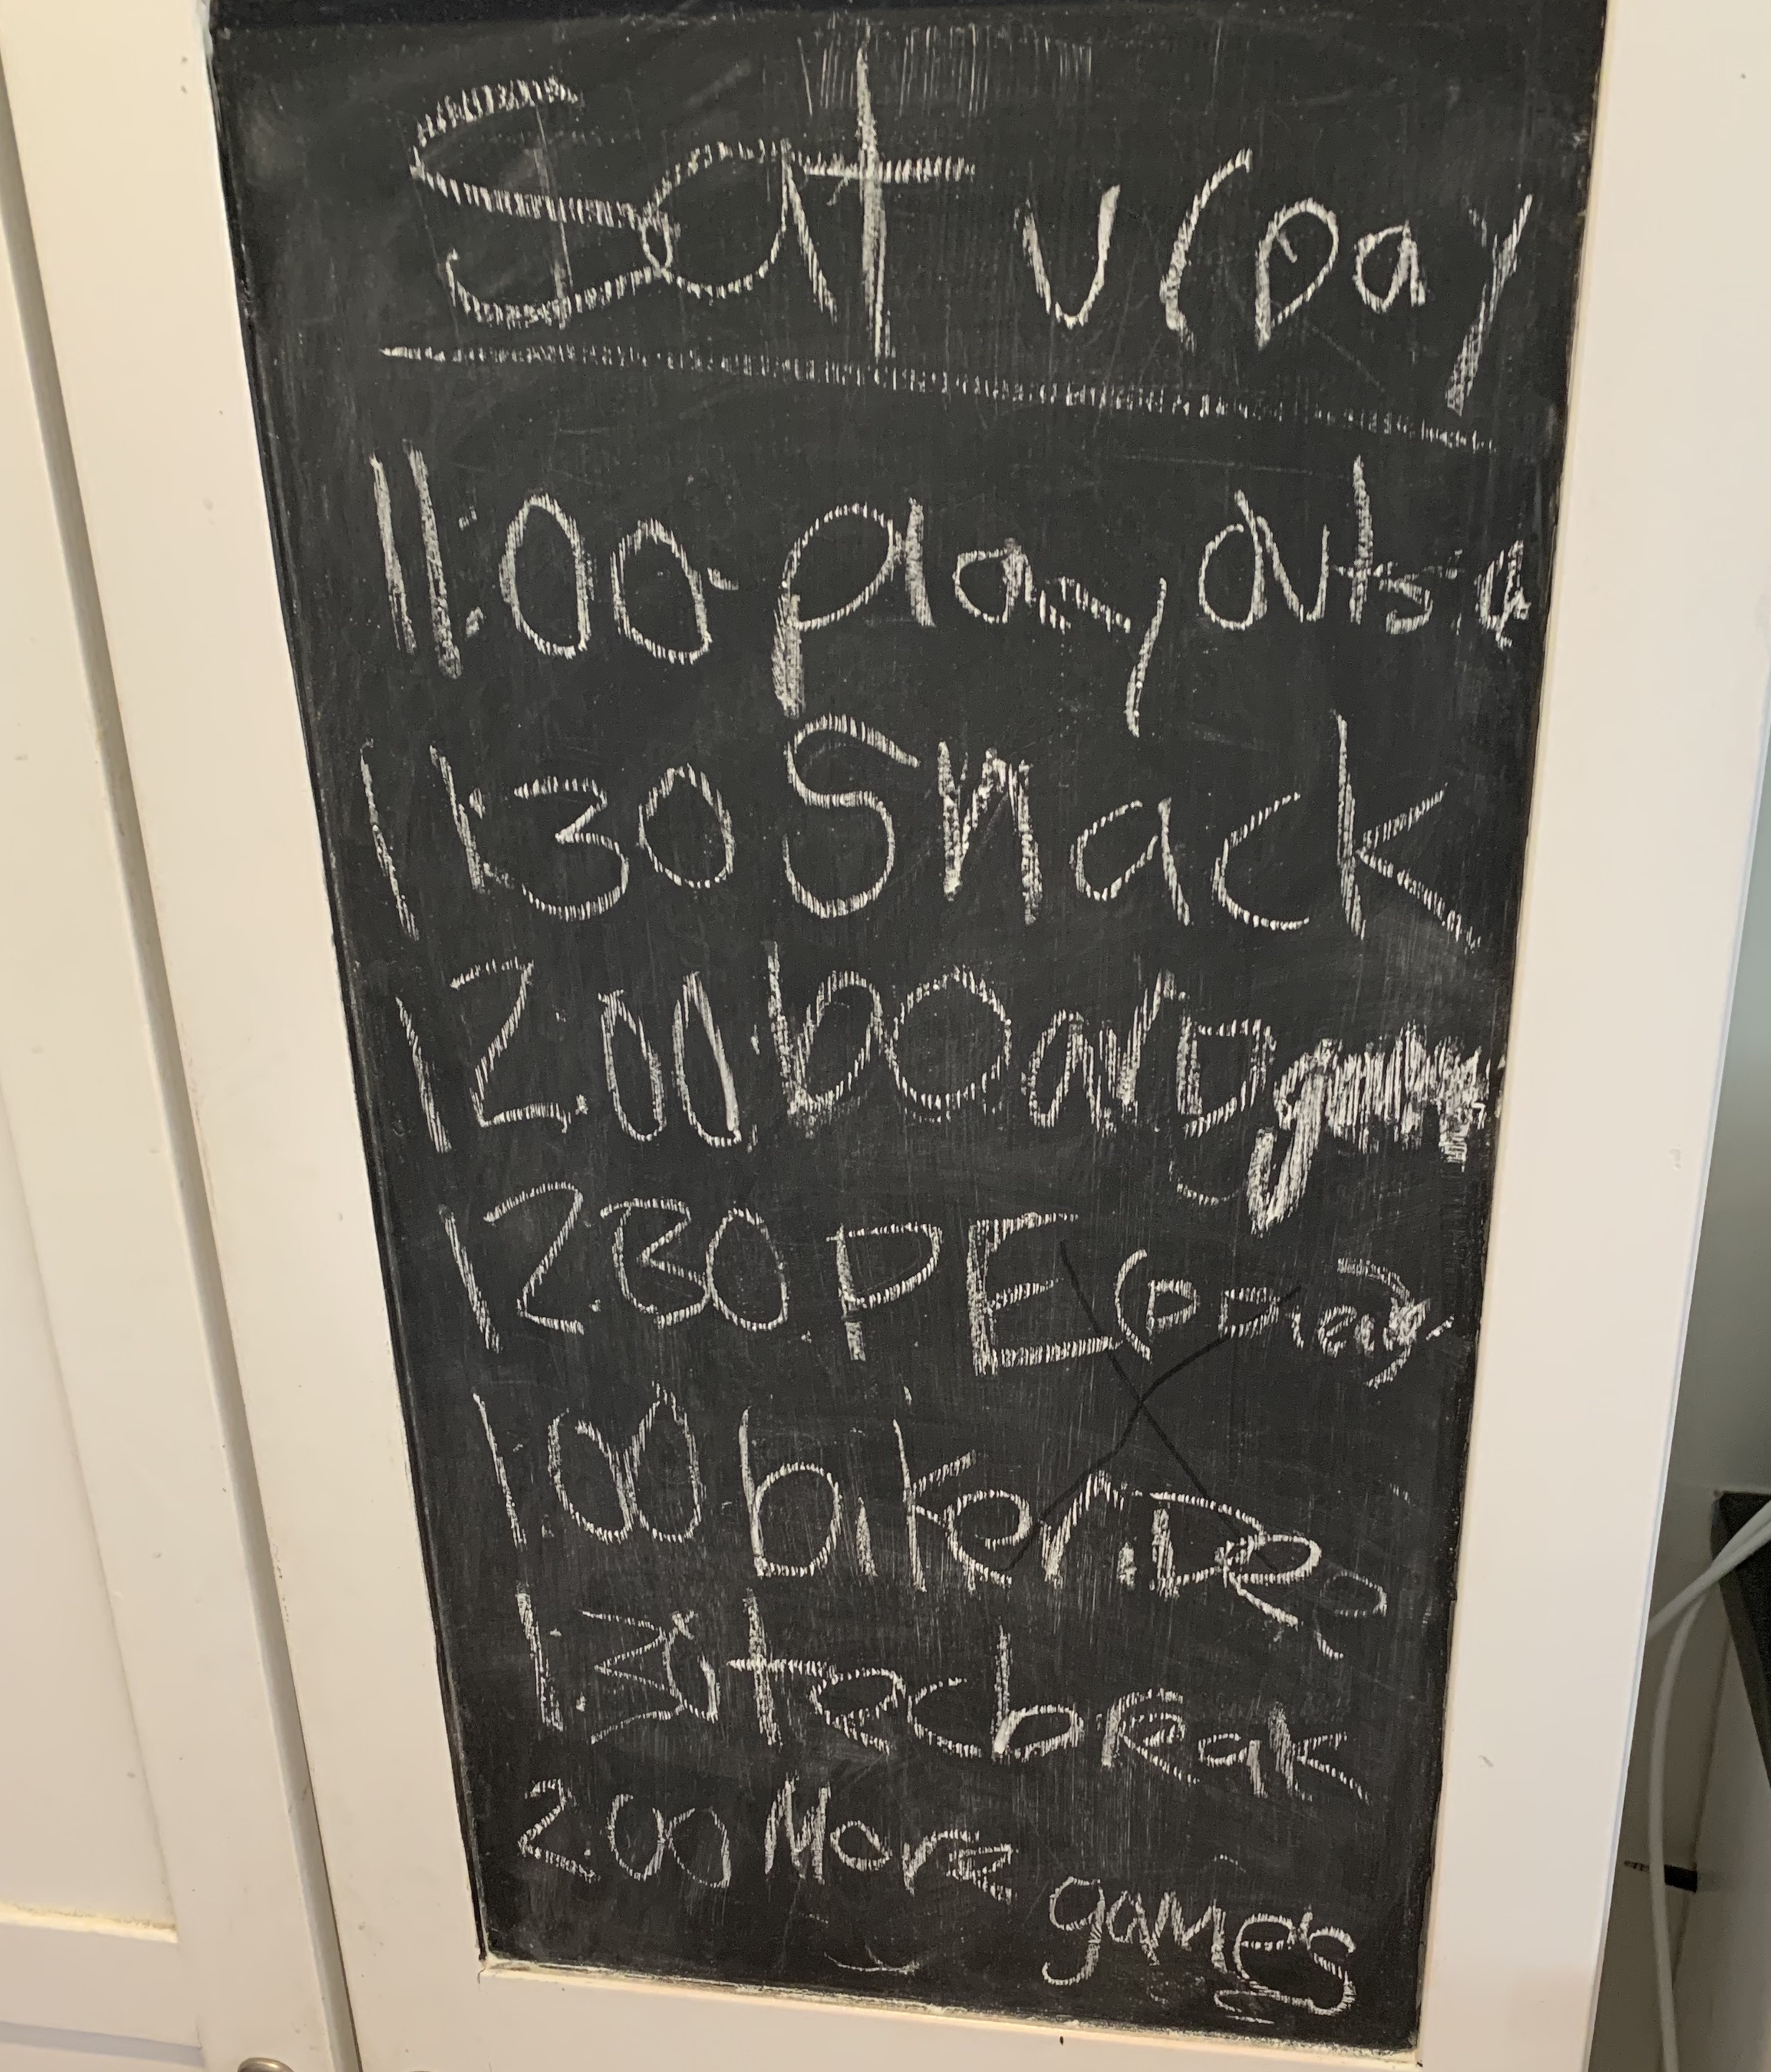 Saturday
11:00 play outsid
11:30 snack
12:00 board game
12:30 PE
1:00 bike ride
1:30 tec break
2:00 More
games